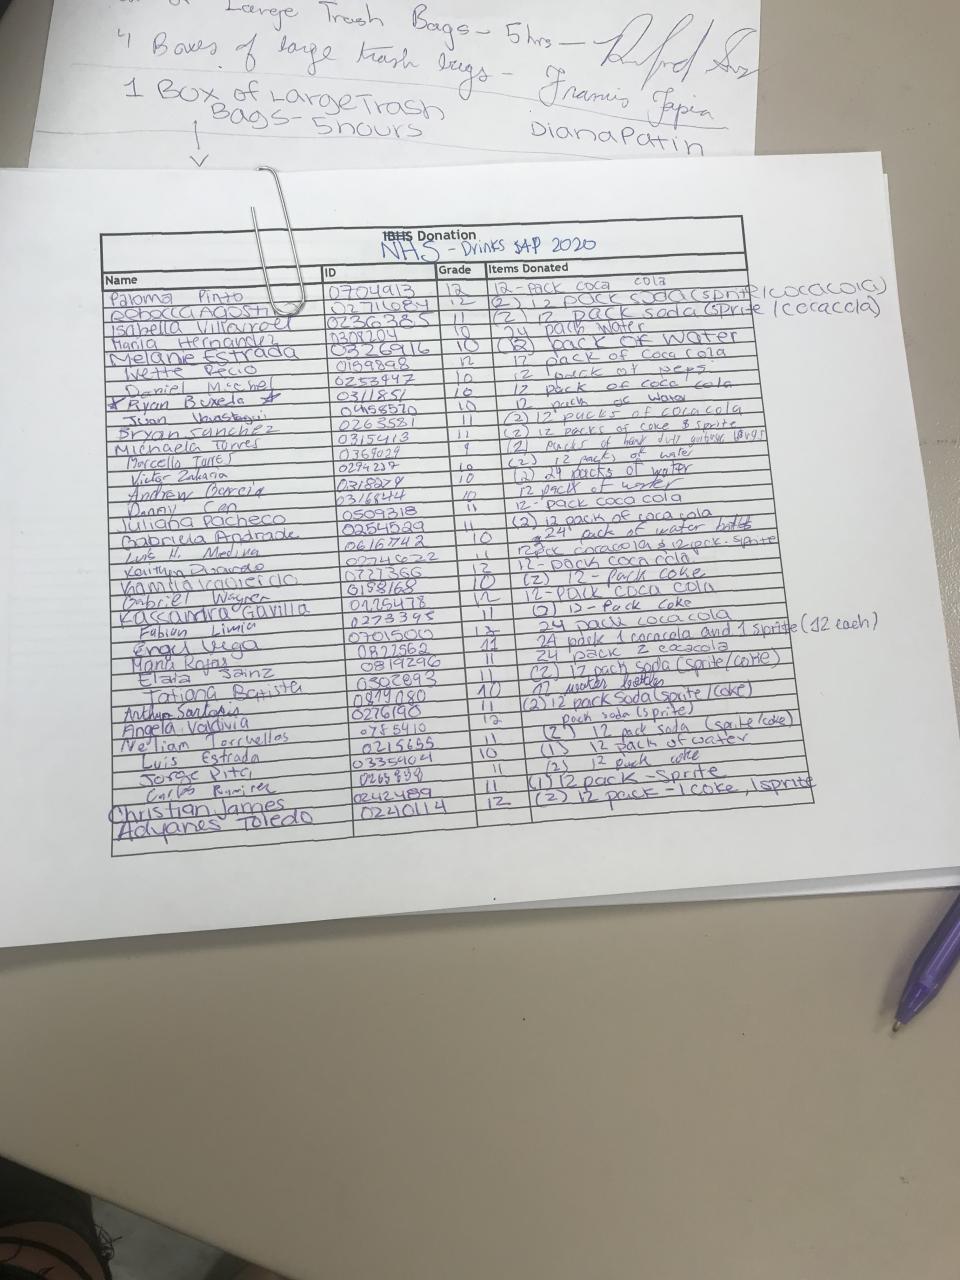 Large Trash Bags - 5hrs -
4 Boxes of large trash bags - Francis Tapia
1 Box of Large Trash
Bags - 5 hours Diana Patin
IBHS Donation
NHS - Drinks SAP 2020
Name ID Grade Items Donated
Paloma Pinto 0704913 12 12-pack coca cola
Rebecca Agosti 02711684 12 (2) 12 pack soda (sprite/cocacola)
Isabella Villarroel 0236385 11 (2) 12 pack soda (sprite/cocacola)
Maria Hernandez 0308204 10 24 pack water
Melanie Estrada 0326916 10 (2) pack of water
Ivette Recio 0159898 12 12 pack of coca cola
Daniel Michel 0253447 10 12 pack of
Ryan Buxeda 0311851 10 12 pack of coca cola
Juan 0458520 10 12 pack of water
Bryan Sanchez 0263581 11 (2) 12 packs of coca cola
Michaela Torres 0315413 11 (2) 12 packs of coke & sprite
Marcello Torres 0369029 9 (2) packs of
Victor Zakaria 0294237 10 (2) 12 packs of water
Andrew Garcia 0318279 10 (2) 24 packs of water
Danny Cen 0316844 10 12 pack of water
Juliana Pacheco 0509318 11 12-pack coca cola
Gabriela Andrade 0254529 11 (2) 12 pack of coca cola
Luis H. Medina 0616742 10 24 pack of water bottles
Kaithyn 11 12pack cocacola & 12 pack sprite
Kamila Izquierdo 0727366 12 12-pack coca cola
Gabriel Wagner 0198168 10 (2) 12-Pack coke
Kassandra Gavilla 0125478 12 12-pack coca cola
Fabian Limia 0273395 11 (2) 12-Pack coke
Engel Vega 0701500 12 24 pack cocacola
Maria Rojas 0822562 11 24 pack 1 cocacola and 1 sprite (12 each)
Elaia Sainz 0819296 11 24 pack 2 cocacola
Tatiana Batista 0302893 11 (2) 12 pack soda (sprite/coke)
Arthur Sartoris 0879080 10 12 water bottles
Angela Valdivia 0276190 11 (2) 12 pack soda (sprite/coke)
Neliam Torruellas 0785410 12 pack soda (sprite)
Luis Estrada 0215655 11 (2) 12 pack soda (sprite/coke)
Jorge Pita 0335404 10 (1) 12 pack of water
Carlos Ramirez 11 (2) 12 pack coke
Christian James 0242489 11 (1) 12 pack - Sprite
Adyanes Toledo 0240114 12 (2) 12 pack - 1 coke, 1 sprite